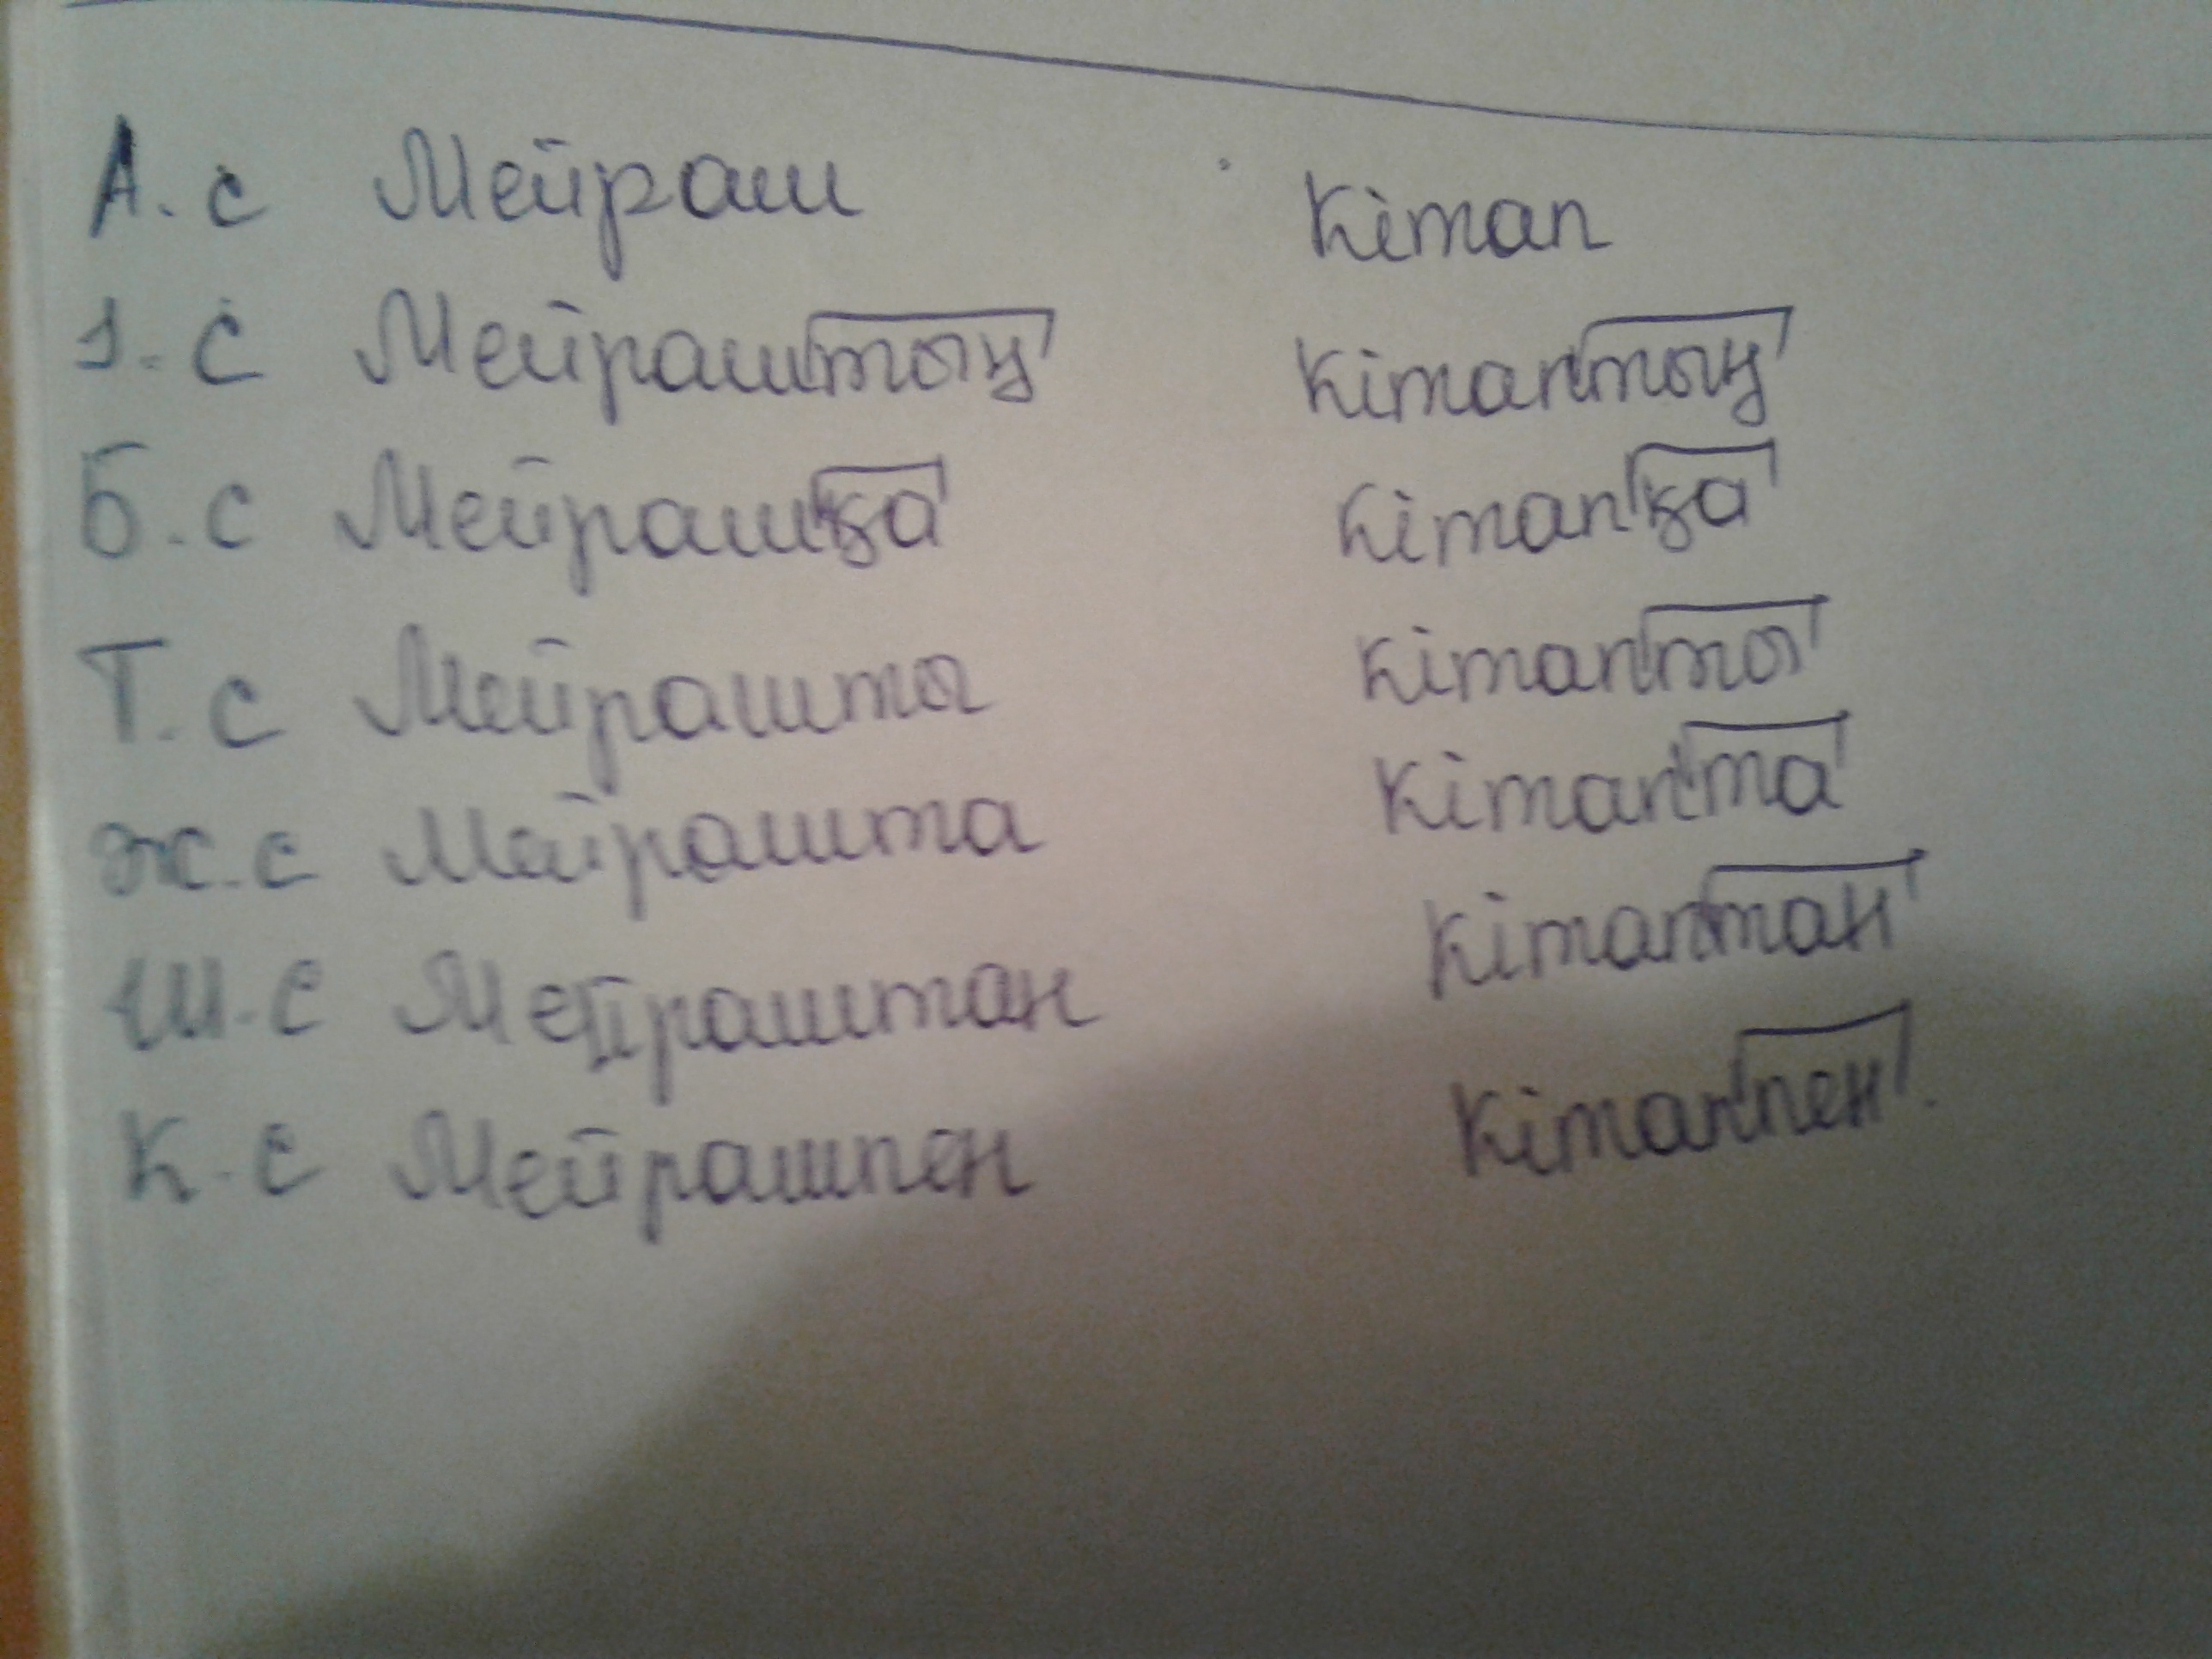 А. с Мейраш Кітап
І. С Мейраштың Кітаптың
Б. с Мейрашқа Кітапқа
Т. с Мейрашты Кітапты
Ж. с Мейрашта Кітапта
Ш. с Мейраштан Кітаптан
К. с Мейрашпен Кітаппен.